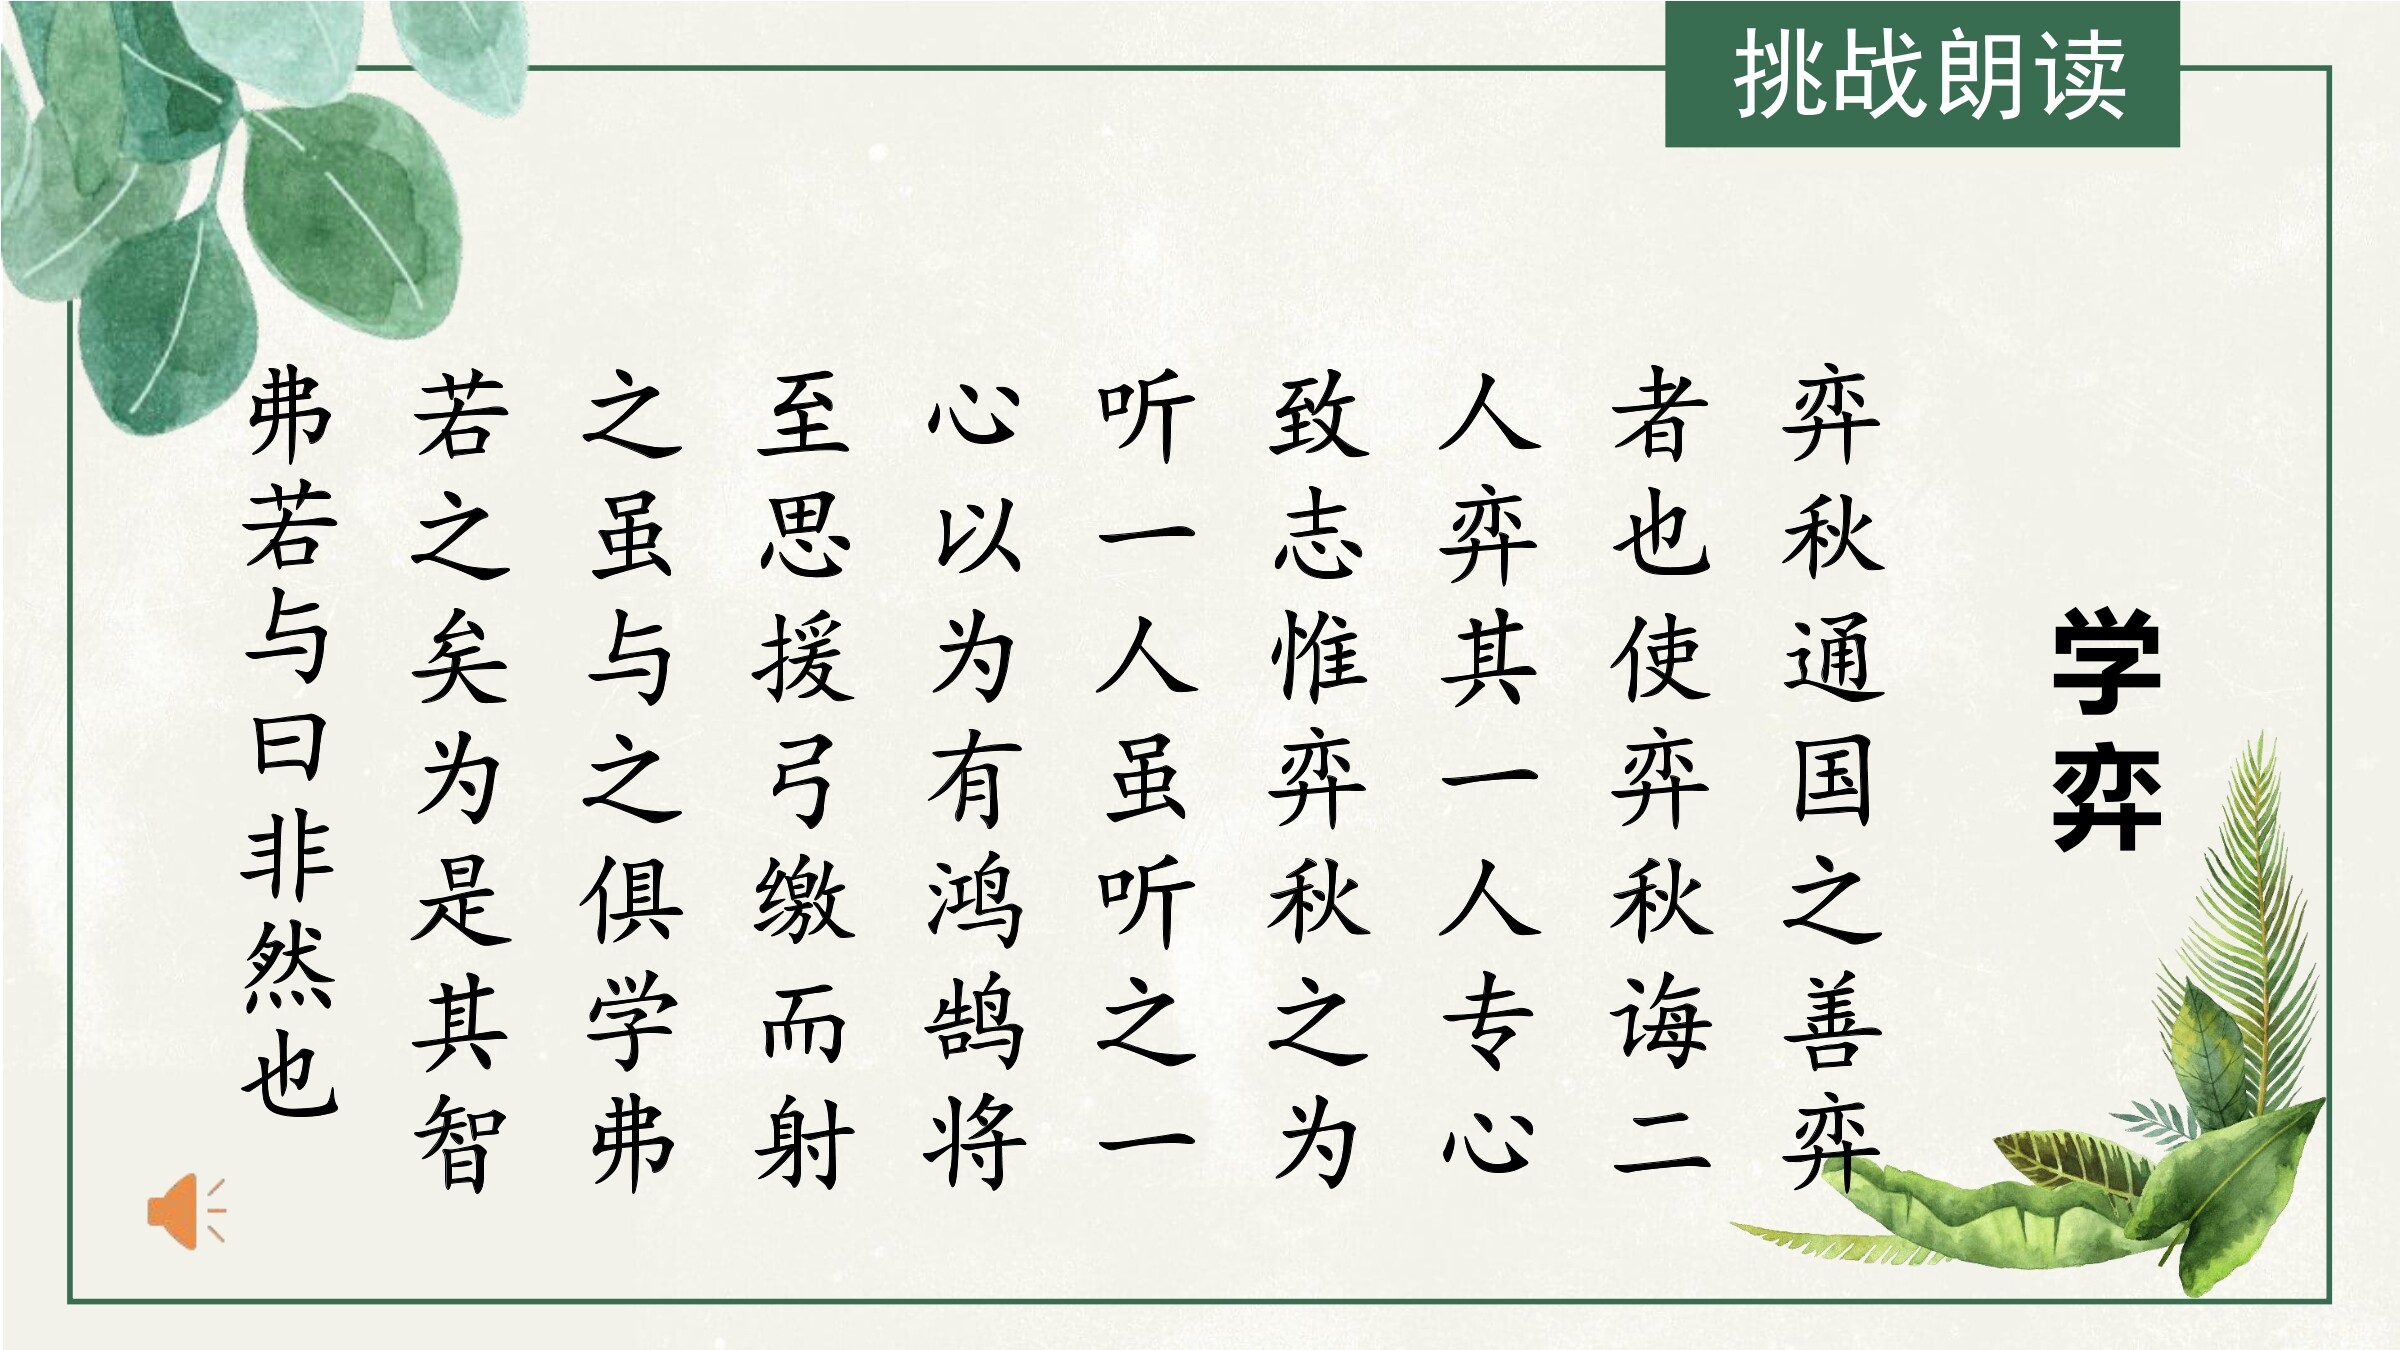 挑战朗读
学弈
弈秋通国之善弈
者也使弈秋诲二
人弈其一人专心
致志惟弈秋之为
听一人虽听之一
心以为有鸿鹄将
至思援弓缴而射
之虽与之俱学弗
若之矣为是其智
弗若与曰非然也